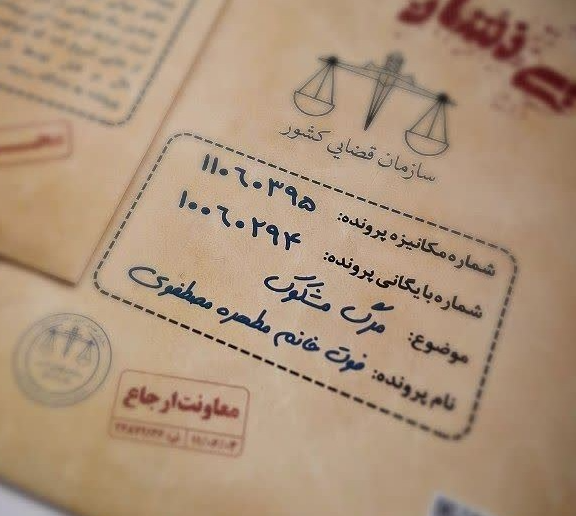 بی نشان
سازمان قضایی کشور
شماره مکانیزه پرونده: ۱۱۰۶۰۳۹۵
شماره بایگانی پرونده: ۱۰۰۶۰۲۹۴
موضوع: مرگ مشکوک
نام پرونده: فوت خانم مطهره مصطفوی
معاونت ارجاع